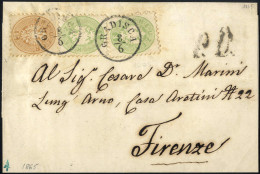 GRADISCA
P.D.
Al Sig. Cesare Dr. Marini
Lung' Arno, Casa Aretini № 22
Firenze
1865